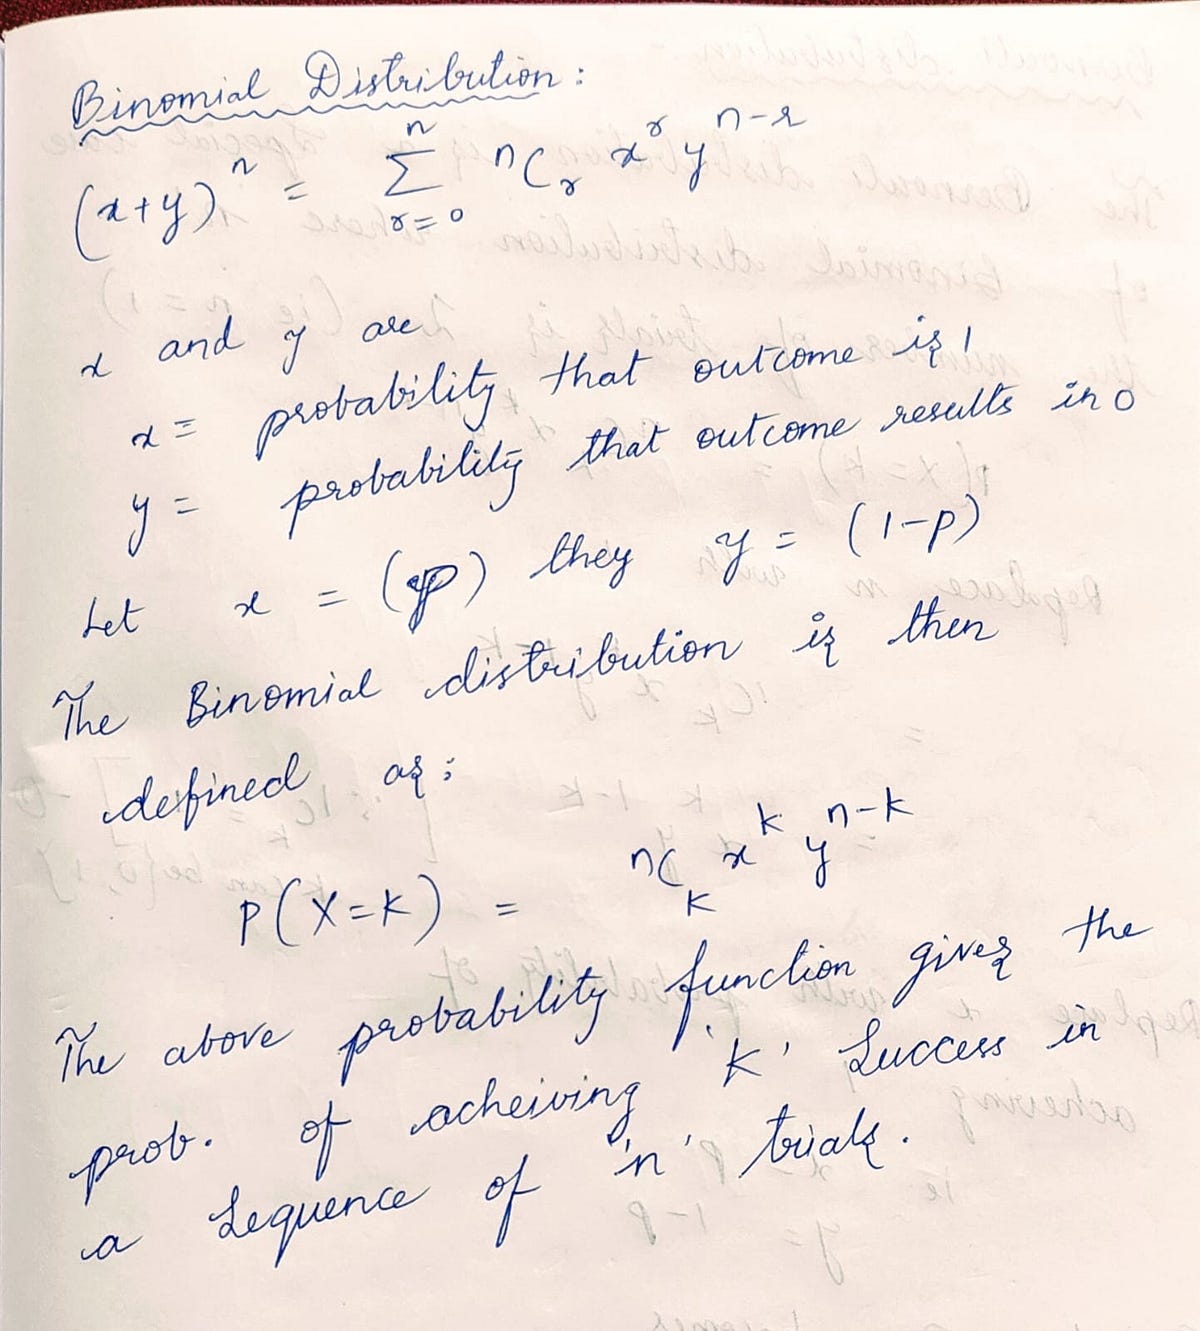 Binomial Distribution :
(x+y)^n = \sum_{r=0}^{n} nC_r x^r y^{n-r}
x and y are
x = probability that outcome is 1
y = probability that outcome results in 0
Let x = (p) they y = (1-p)
The Binomial distribution is then
defined as :
P(X=k) = nC_k x^k y^{n-k}
The above probability function gives the
prob. of acheiving 'k' Success in
a Sequence of 'n' trials.